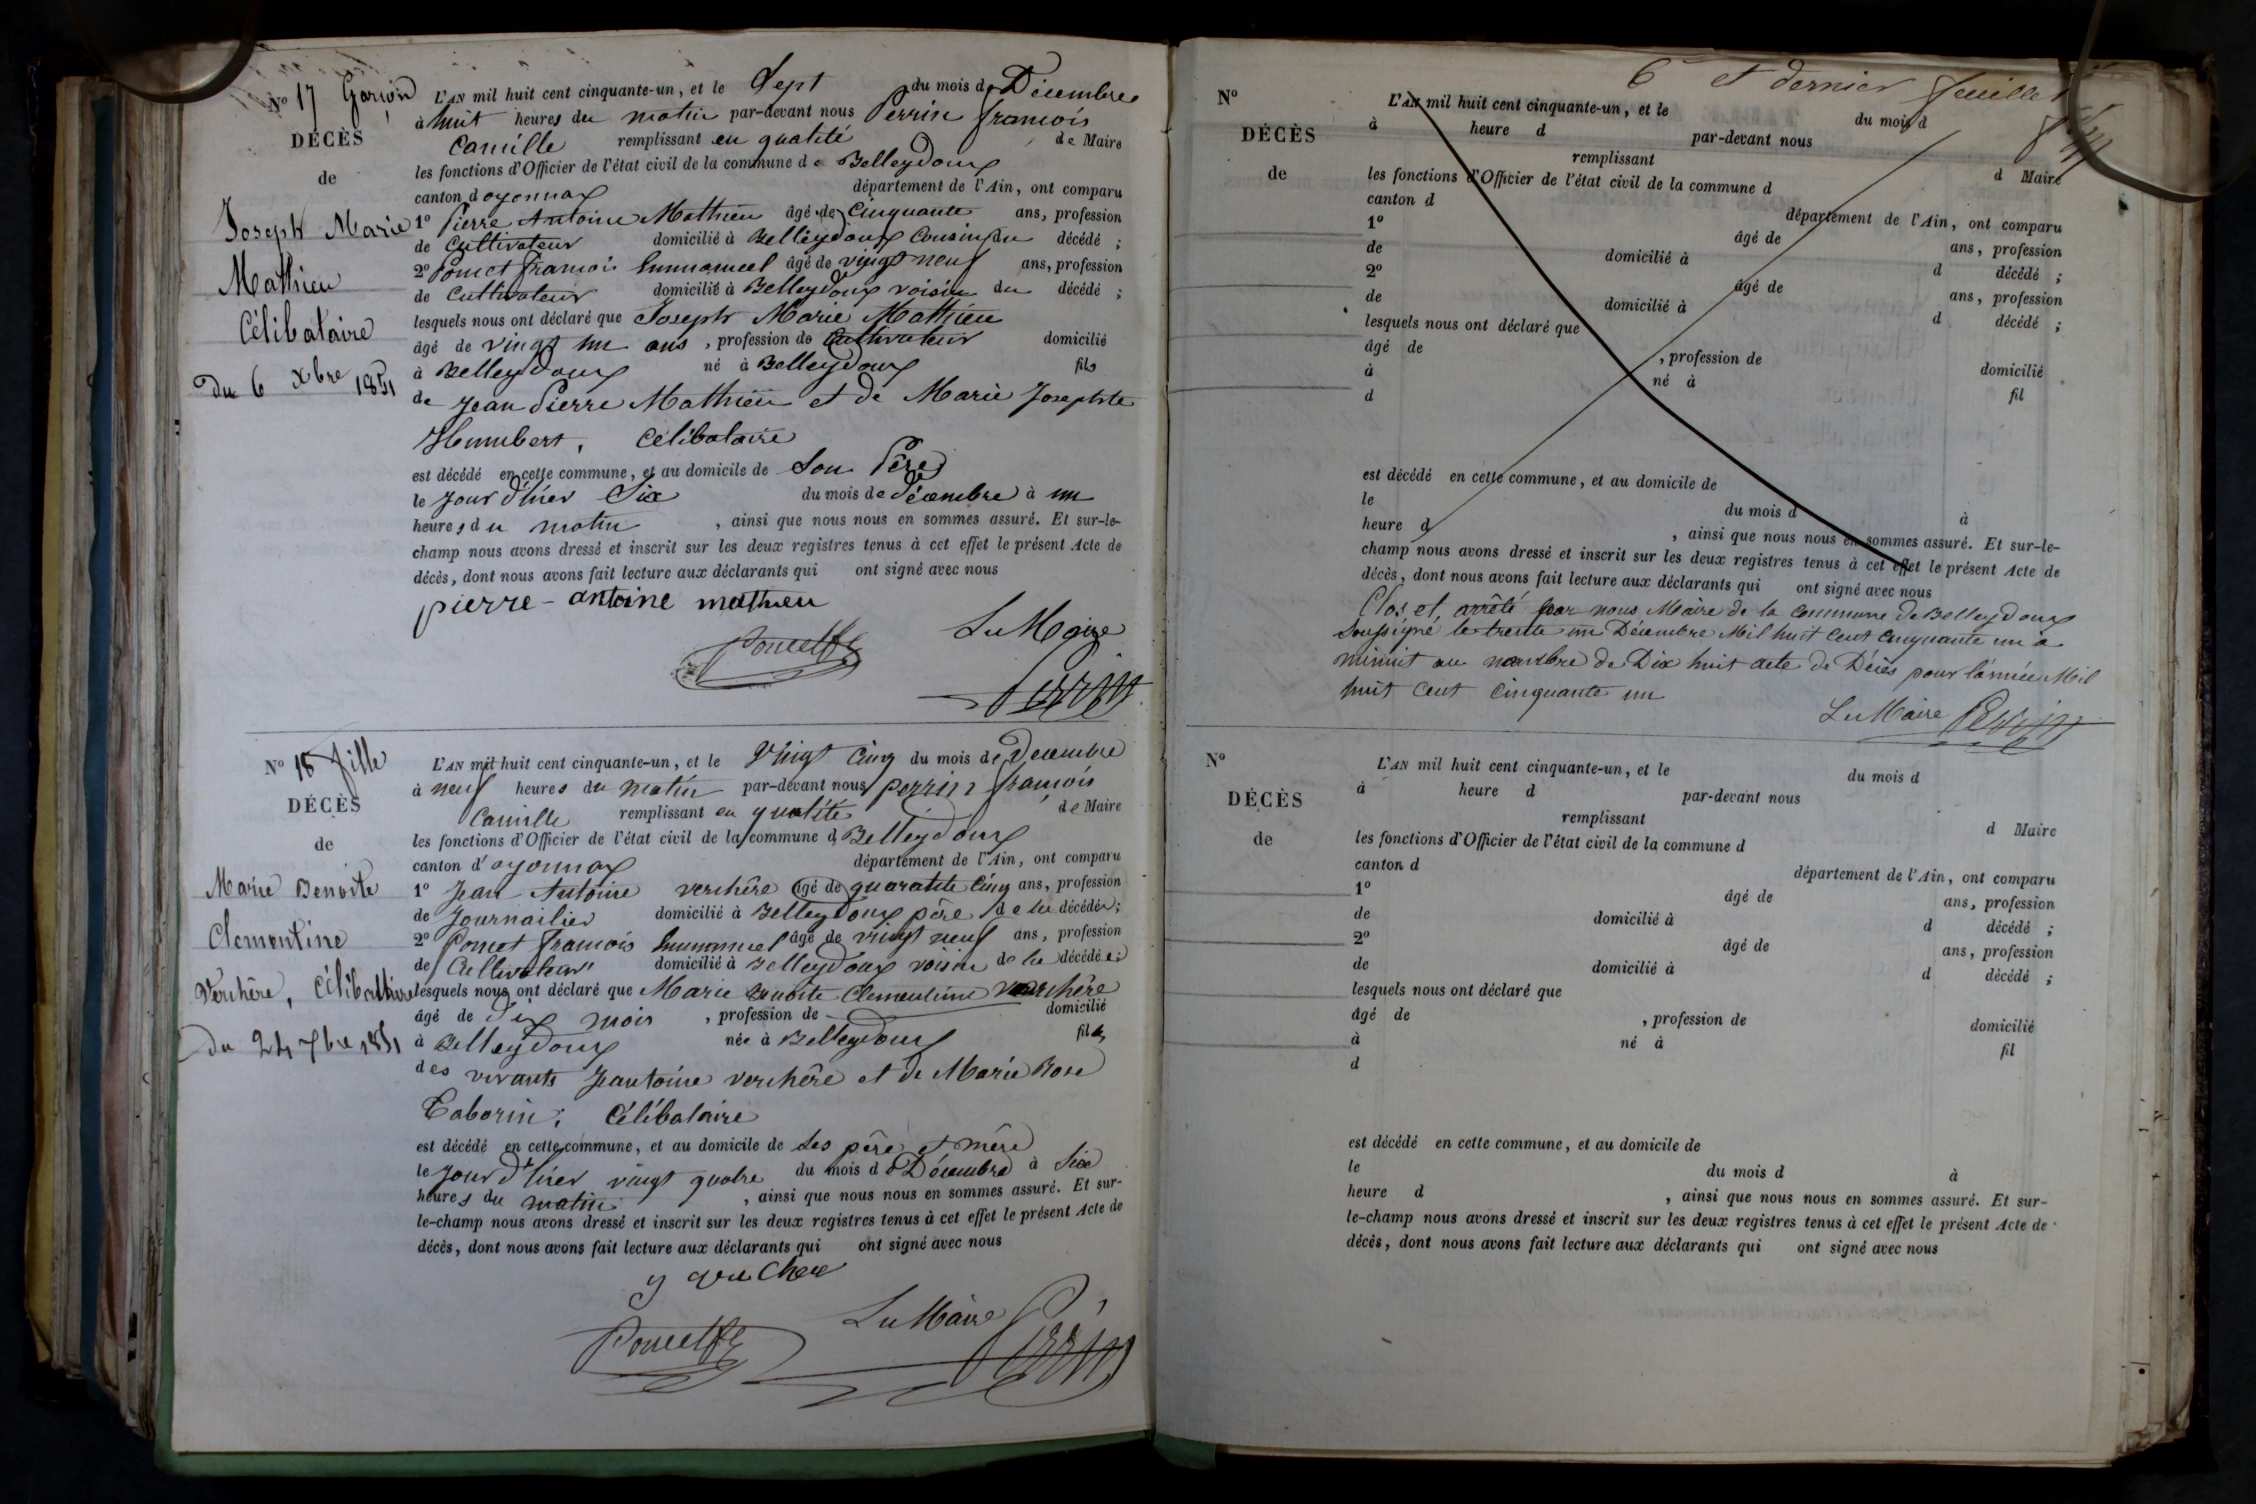 Nº 17 Garçon
DÉCÈS
de
Joseph Marie
Mathieu
Célibataire
du 6 xbre 1851
L'AN mil huit cent cinquante-un, et le Sept du mois de Décembre
à huit heures du matin par-devant nous Perrin françois
Camille remplissant en qualité de Maire
les fonctions d'Officier de l'état civil de la commune de Belleydoux
canton d'oyonnax département de l'Ain, ont comparu
1º Pierre Antoine Mathieu âgé de Cinquante ans, profession
de Cultivateur domicilié à Belleydoux Cousin du décédé ;
2º Poncet françois Emmanuel âgé de vingt neuf ans, profession
de Cultivateur domicilié à Belleydoux voisin du décédé ;
lesquels nous ont déclaré que Joseph Marie Mathieu
âgé de vingt un ans, profession de Cultivateur domicilié
à Belleydoux né à Belleydoux fils
de Jean Pierre Mathieu et de Marie Josephte
Humbert, Célibataire
est décédé en cette commune, et au domicile de Son Père
le jour d'hier Six du mois de décembre à un
heures du matin, ainsi que nous nous en sommes assuré. Et sur-le-
champ nous avons dressé et inscrit sur les deux registres tenus à cet effet le présent Acte de
décès, dont nous avons fait lecture aux déclarants qui ont signé avec nous
pierre-antoine mathieu
Le Maire
Poncet fs
Perrin
Nº 18 fille
DÉCÈS
de
Marie Benoite
Clementine
Verchère, Célibattaire
du 24 xbre 1851
L'AN mil huit cent cinquante-un, et le Vingt Cinq du mois de Decembre
à neuf heures du matin par-devant nous perrin françois
Camille remplissant en qualité de Maire
les fonctions d'Officier de l'état civil de la commune d Belleydoux
canton d'oyonnax département de l'Ain, ont comparu
1º Jean Antoine verchère âgé de quarante Cinq ans, profession
de Journailier domicilié à Belleydoux père de la décédée ;
2º Poncet françois Emmanuel âgé de vingt neuf ans, profession
de Cultivateur domicilié à Belleydoux voisin de la décédée ;
lesquels nous ont déclaré que Marie Benoite Clementine Verchère
âgé de Dix mois, profession de domicilié
à Belleydoux née à Belleydoux fille
des vivants Jeantoine verchère et de Marie Rose
Taborin ; Célibataire
est décédé en cette commune, et au domicile de Ses père et mère
le jour d'hier vingt quatre du mois de Décembre à Six
heures du matin, ainsi que nous nous en sommes assuré. Et sur-
le-champ nous avons dressé et inscrit sur les deux registres tenus à cet effet le présent Acte de
décès, dont nous avons fait lecture aux déclarants qui ont signé avec nous
Le Maire
Poncet fs
Perrin
6 et dernier feuillet
Nº
DÉCÈS
de
L'AN mil huit cent cinquante-un, et le du mois d
à heure d par-devant nous
remplissant d Maire
les fonctions d'Officier de l'état civil de la commune d
canton d département de l'Ain, ont comparu
1º âgé de ans, profession
de domicilié à d décédé ;
2º âgé de ans, profession
de domicilié à d décédé ;
lesquels nous ont déclaré que
âgé de , profession de domicilié
à né à fil
d
est décédé en cette commune, et au domicile de
le du mois d à
heure d , ainsi que nous nous en sommes assuré. Et sur-le-
champ nous avons dressé et inscrit sur les deux registres tenus à cet effet le présent Acte de
décès, dont nous avons fait lecture aux déclarants qui ont signé avec nous
Clos et arrêté par nous Maire de la Commune de Belleydoux
Soussigné le trente un Décembre Mil huit Cent Cinquante un à
minuit au nombre de Dix huit acte de Décès pour l'année Mil
huit Cent Cinquante un
Le Maire Perrin
Nº
DÉCÈS
de
L'AN mil huit cent cinquante-un, et le du mois d
à heure d par-devant nous
remplissant d Maire
les fonctions d'Officier de l'état civil de la commune d
canton d département de l'Ain, ont comparu
1º âgé de ans, profession
de domicilié à d décédé ;
2º âgé de ans, profession
de domicilié à d décédé ;
lesquels nous ont déclaré que
âgé de , profession de domicilié
à né à fil
d
est décédé en cette commune, et au domicile de
le du mois d à
heure d , ainsi que nous nous en sommes assuré. Et sur-
le-champ nous avons dressé et inscrit sur les deux registres tenus à cet effet le présent Acte de
décès, dont nous avons fait lecture aux déclarants qui ont signé avec nous